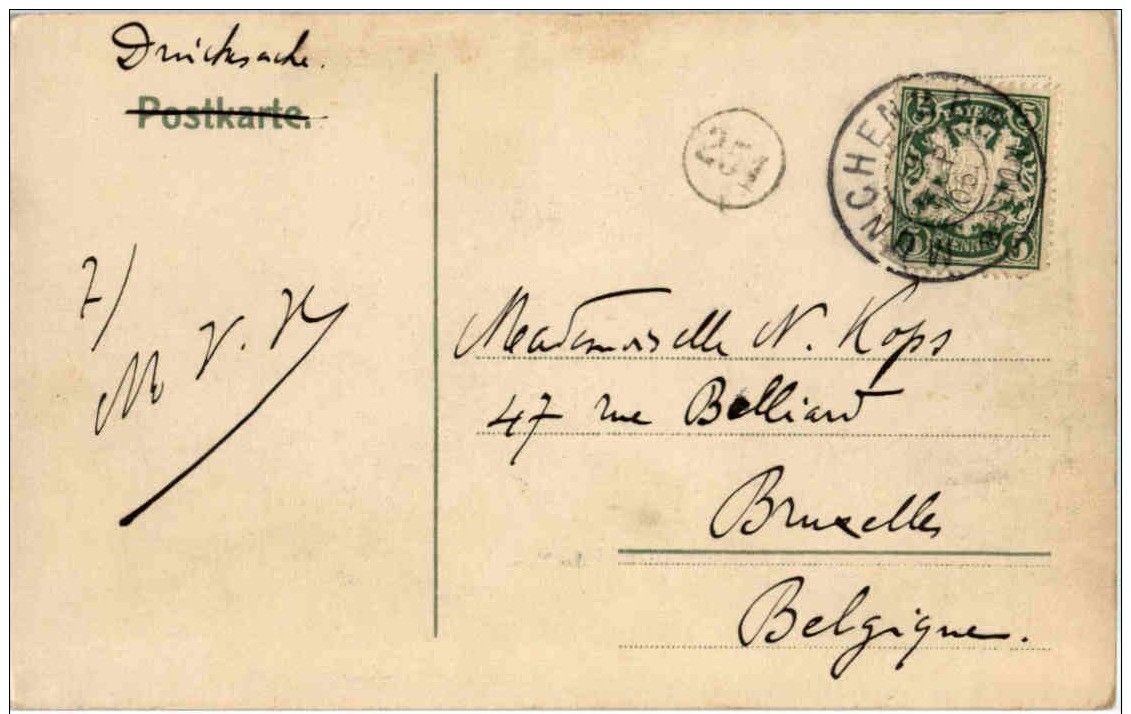 Drucksache.
Postkarte.
251
MÜNCHEN
BAYERN
5 5
5 PFENNIG 5
7/
M V. K
Mademoiselle N. Kops
47 rue Belliard
Bruxelles
Belgique.